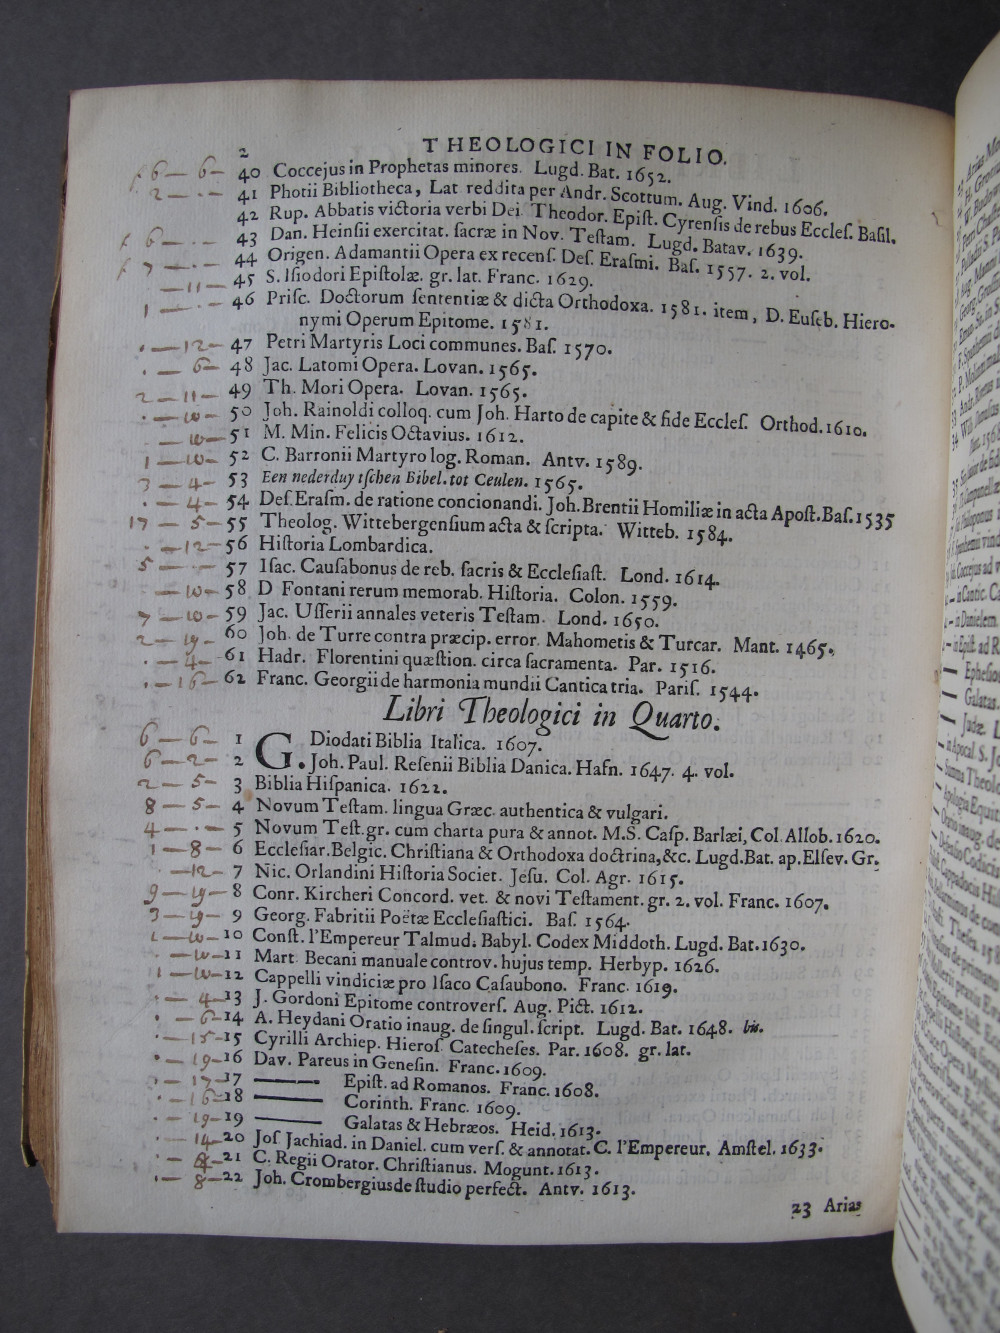 2
THEOLOGICI IN FOLIO.
6 — 6 — 40 Coccejus in Prophetas minores. Lugd. Bat. 1652.
2 — · — 41 Photii Bibliotheca, Lat reddita per Andr. Scottum. Aug. Vind. 1606.
42 Rup. Abbatis victoria verbi Dei Theodor. Epiſt. Cyrenſis de rebus Eccleſ. Baſil.
6 — · — 43 Dan. Heinſii exercitat. ſacræ in Nov. Teſtam. Lugd. Batav. 1639.
7 — · — 44 Origen. Adamantii Opera ex recenſ. Deſ. Eraſmi. Baſ. 1557. 2. vol.
— 11 — 45 S. Iſiodori Epiſtolæ. gr. lat. Franc. 1629.
1 — · — 46 Priſc. Doctorum ſententiæ & dicta Orthodoxa. 1581. item, D. Euſeb. Hiero-
nymi Operum Epitome. 1581.
· — 12 — 47 Petri Martyris Loci communes. Baſ. 1570.
· — 6 — 48 Jac. Latomi Opera. Lovan. 1565.
2 — 11 — 49 Th. Mori Opera. Lovan. 1565.
· — 10 — 50 Joh. Rainoldi colloq. cum Joh. Harto de capite & fide Eccleſ. Orthod. 1610.
— 10 — 51 M. Min. Felicis Octavius. 1612.
1 — 10 — 52 C. Barronii Martyrolog. Roman. Antv. 1589.
3 — 4 — 53 Een nederduytſchen Bibel. tot Ceulen. 1565.
· — 4 — 54 Deſ. Eraſm. de ratione concionandi. Joh. Brentii Homiliæ in acta Apoſt. Baſ. 1535
17 — 5 — 55 Theolog. Wittebergenſium acta & ſcripta. Witteb. 1584.
· — 12 — 56 Hiſtoria Lombardica.
5 — · — 57 Iſac. Cauſabonus de reb. ſacris & Eccleſiaſt. Lond. 1614.
· — 10 — 58 D Fontani rerum memorab. Hiſtoria. Colon. 1559.
7 — 10 — 59 Jac. Uſſerii annales veteris Teſtam. Lond. 1650.
2 — 19 — 60 Joh. de Turre contra præcip. error. Mahometis & Turcar. Mant. 1465.
· — 4 — 61 Hadr. Florentini quæſtion. circa ſacramenta. Par. 1516.
· — 16 — 62 Franc. Georgii de harmonia mundii Cantica tria. Pariſ. 1544.
Libri Theologici in Quarto.
6 — 6 — 1 G. Diodati Biblia Italica. 1607.
6 — 2 — 2 Joh. Paul. Reſenii Biblia Danica. Hafn. 1647. 4. vol.
2 — 5 — 3 Biblia Hiſpanica. 1622.
8 — 5 — 4 Novum Teſtam. lingua Græc. authentica & vulgari.
4 — · — 5 Novum Teſt. gr. cum charta pura & annot. M.S. Caſp. Barlæi, Col. Allob. 1620.
1 — 8 — 6 Eccleſiar. Belgic. Chriſtiana & Orthodoxa doctrina, &c. Lugd. Bat. ap. Elſev. Gr.
— 12 — 7 Nic. Orlandini Hiſtoria Societ. Jeſu. Col. Agr. 1615.
9 — 19 — 8 Conr. Kircheri Concord. vet. & novi Teſtament. gr. 2. vol. Franc. 1607.
3 — 19 — 9 Georg. Fabritii Poëtæ Eccleſiaſtici. Baſ. 1564.
1 — 10 — 10 Conſt. l'Empereur Talmud. Babyl. Codex Middoth. Lugd. Bat. 1630.
· — 10 — 11 Mart. Becani manuale controv. hujus temp. Herbyp. 1626.
1 — 10 — 12 Cappelli vindiciæ pro Iſaco Caſaubono. Franc. 1619.
· — 4 — 13 J. Gordoni Epitome controverſ. Aug. Pict. 1612.
· — 6 — 14 A. Heydani Oratio inaug. de ſingul. ſcript. Lugd. Bat. 1648. bis.
· — 15 — 15 Cyrilli Archiep. Hieroſ Catecheſes. Par. 1608. gr. lat.
· — 19 — 16 Dav. Pareus in Geneſin. Franc. 1609.
· — 17 — 17 ——— Epiſt. ad Romanos. Franc. 1608.
· — 16 — 18 ——— Corinth. Franc. 1609.
· — 19 — 19 ——— Galatas & Hebræos. Heid. 1613.
· — 14 — 20 Joſ Jachiad. in Daniel. cum verſ. & annotat. C. l'Empereur. Amſtel. 1633.
· — 21 C. Regii Orator. Chriſtianus. Mogunt. 1613.
· — 8 — 22 Joh. Crombergius de ſtudio perfect. Antv. 1613.
23 Arias